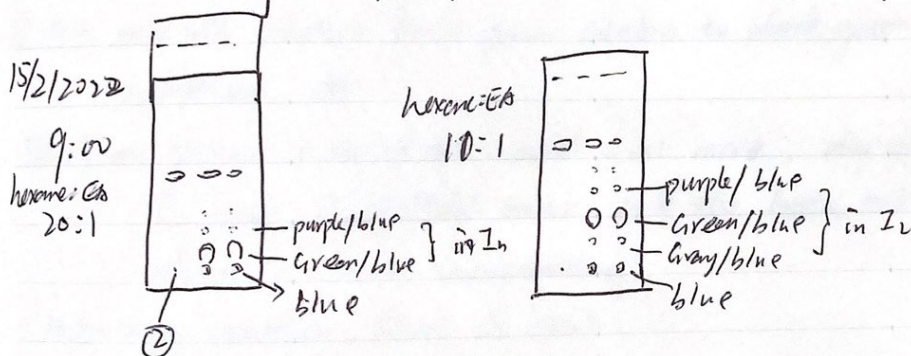 15/2/2022
9:00
hexane: EA
20:1
purple/blue
Green/blue
} in I₂
blue
②
hexane: EA
10:1
purple/blue
Green/blue
Gray/blue
} in I₂
blue